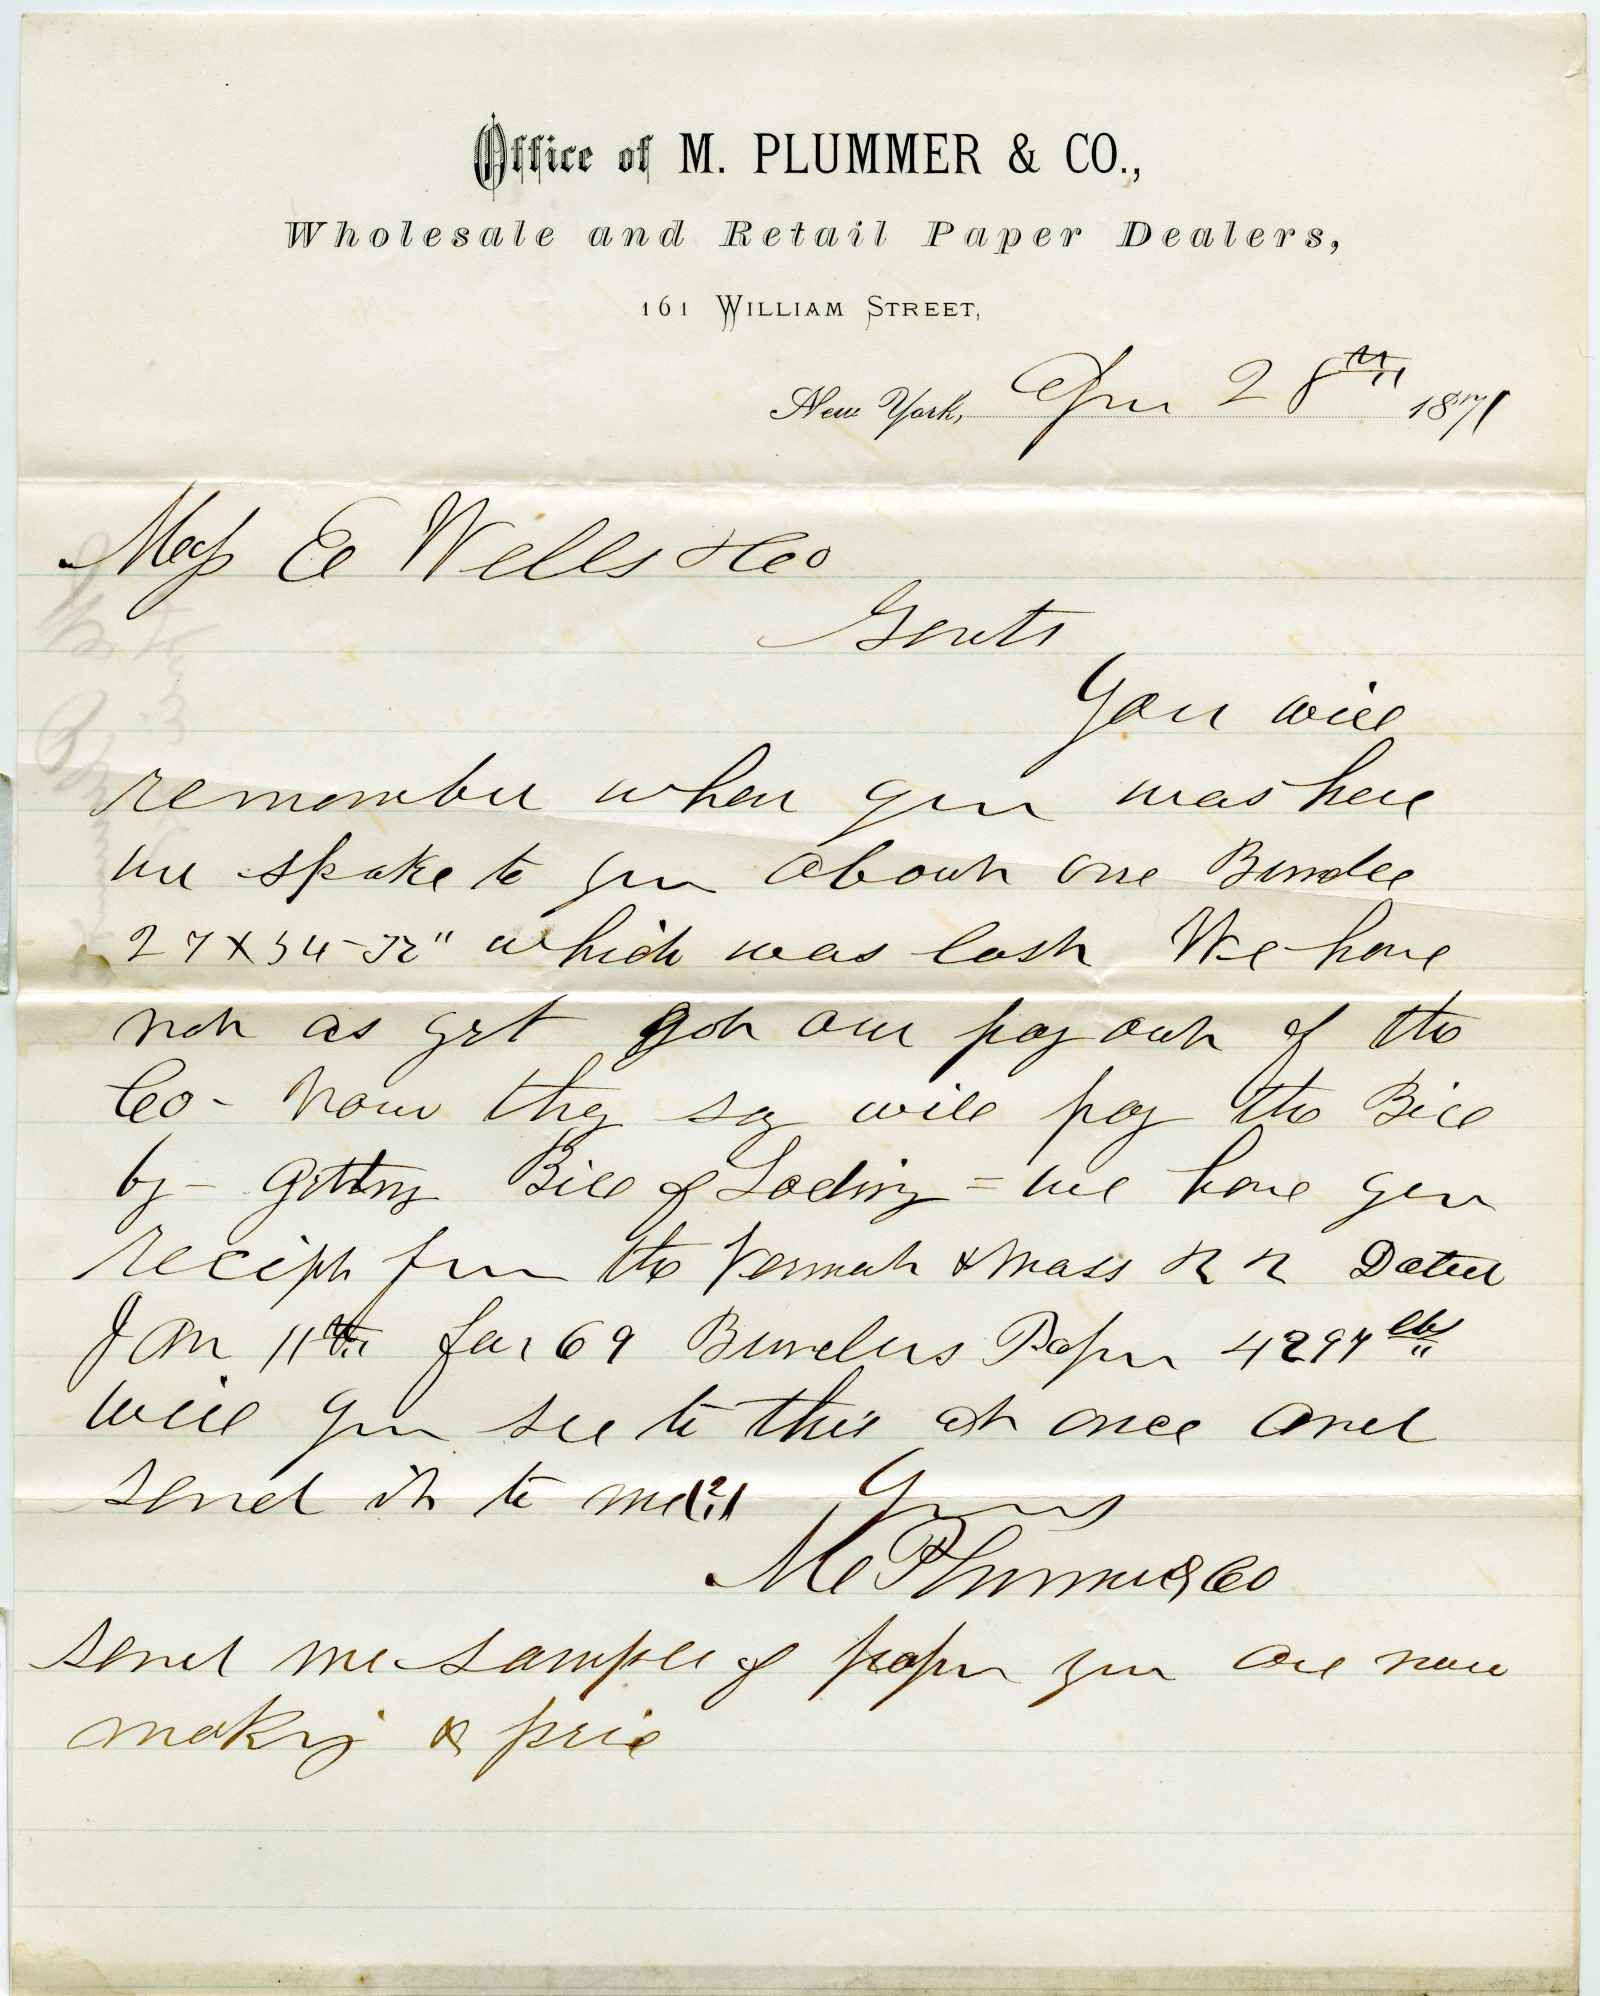 Office of M. PLUMMER & CO.,
Wholesale and Retail Paper Dealers,
161 WILLIAM STREET,
New York, Apr 28th 1871
Mess E Wells & Co
Gents
You will
remember when you was here
we spoke to you about one Bundle
27 x 34 - 52" which was lost We have
not as yet got our pay out of the
Co - Now they say will pay the Bill
by - getting Bill of Loding = we have your
recipt from the Vermont & Mass R R Dated
Jan 11th for 69 Bundles Paper 4297 lbs
will you see to this at once and
send it to me Yours
M Plummer & Co
send me sample of paper you are now
making & price